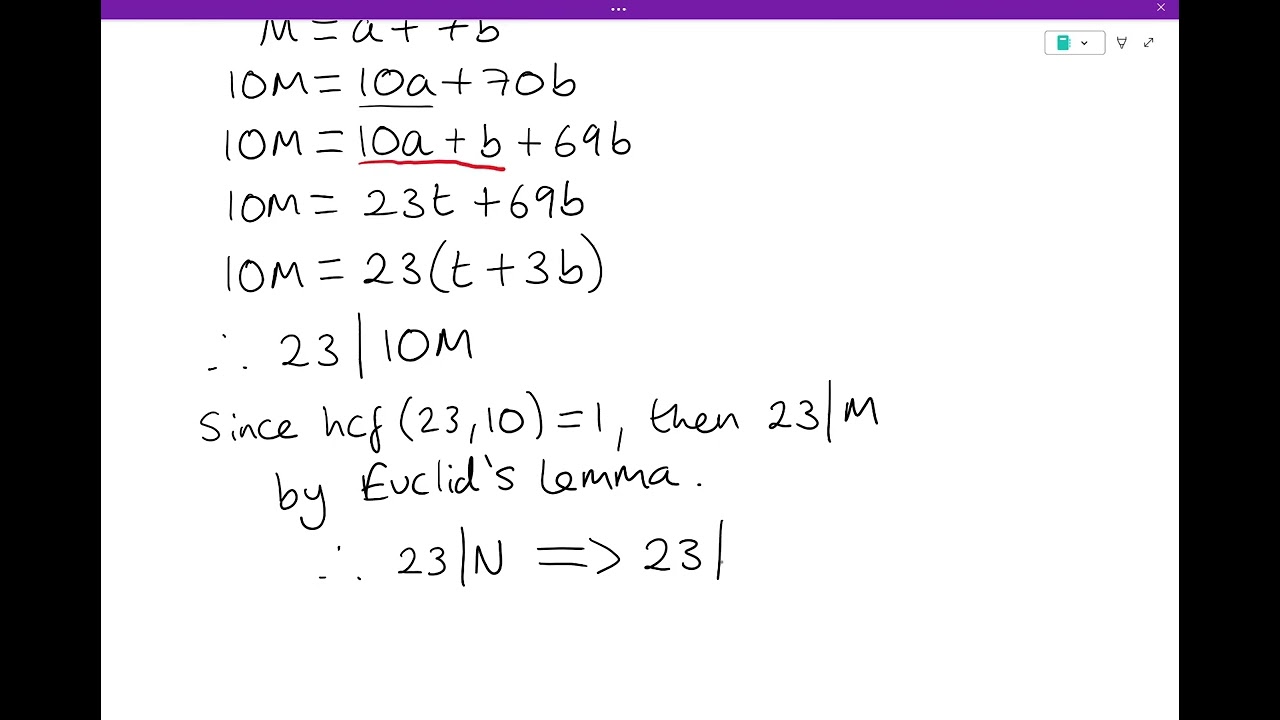 M = a + 7b
10M = 10a + 70b
10M = 10a + b + 69b
10M = 23t + 69b
10M = 23(t + 3b)
∴ 23 | 10M
Since hcf (23, 10) = 1, then 23 | M
by Euclid's Lemma.
∴ 23 | N => 23 |